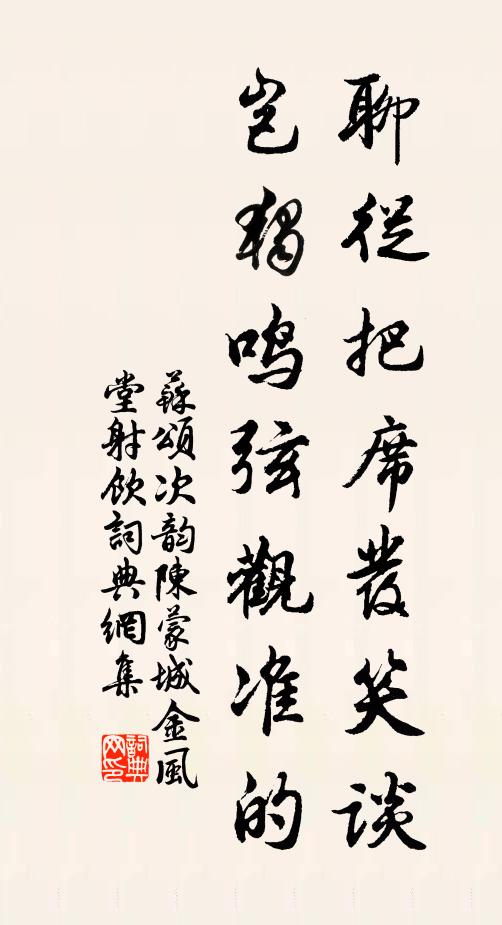 聊從把席發笑談
豈獨鳴弦觀准的
蘇頌次韵陳蒙城金風
堂射飲詞典網集
詞典
网印